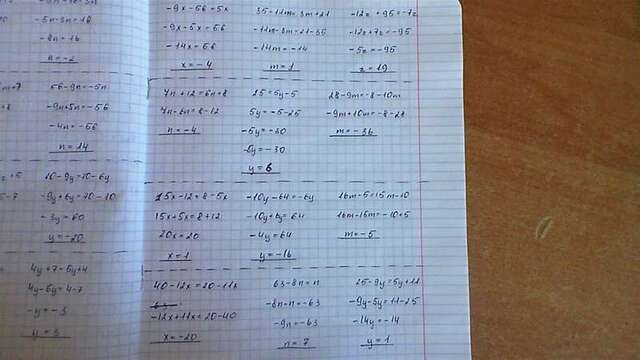 -5n-3n=16
-8n=16
n=-2
-9x-56=5x
-9x-5x=56
-14x=56
x=-4
35-11m=3m+21
-11m-3m=21-35
-14m=-14
m=1
-12z+95=-7z
-12z+7z=-95
-5z=-95
z=19
56-9n=-5n
-9n+5n=-56
-4n=-56
n=14
7n+12=6n+8
7n-6n=8-12
n=-4
25=5y-5
5y=-5-25
-5y=-30
-5y=-30
y=6
28-9m=-8-10m
-9m+10m=-8-28
m=-36
10-9y=70-6y
-9y+6y=70-10
-3y=60
y=-20
15x-12=8-5x
15x+5x=8+12
20x=20
x=1
-10y-64=-6y
-10y+6y=64
-4y=64
y=-16
16m-5=15m-10
16m-15m=-10+5
m=-5
4y+7=5y+4
4y-5y=4-7
-y=-3
y=3
40-12x=20-11x
-12x+11x=20-40
x=-20
63-8n=n
-8n-n=-63
-9n=-63
n=7
25-9y=5y+11
-9y-5y=11-25
-14y=-14
y=1